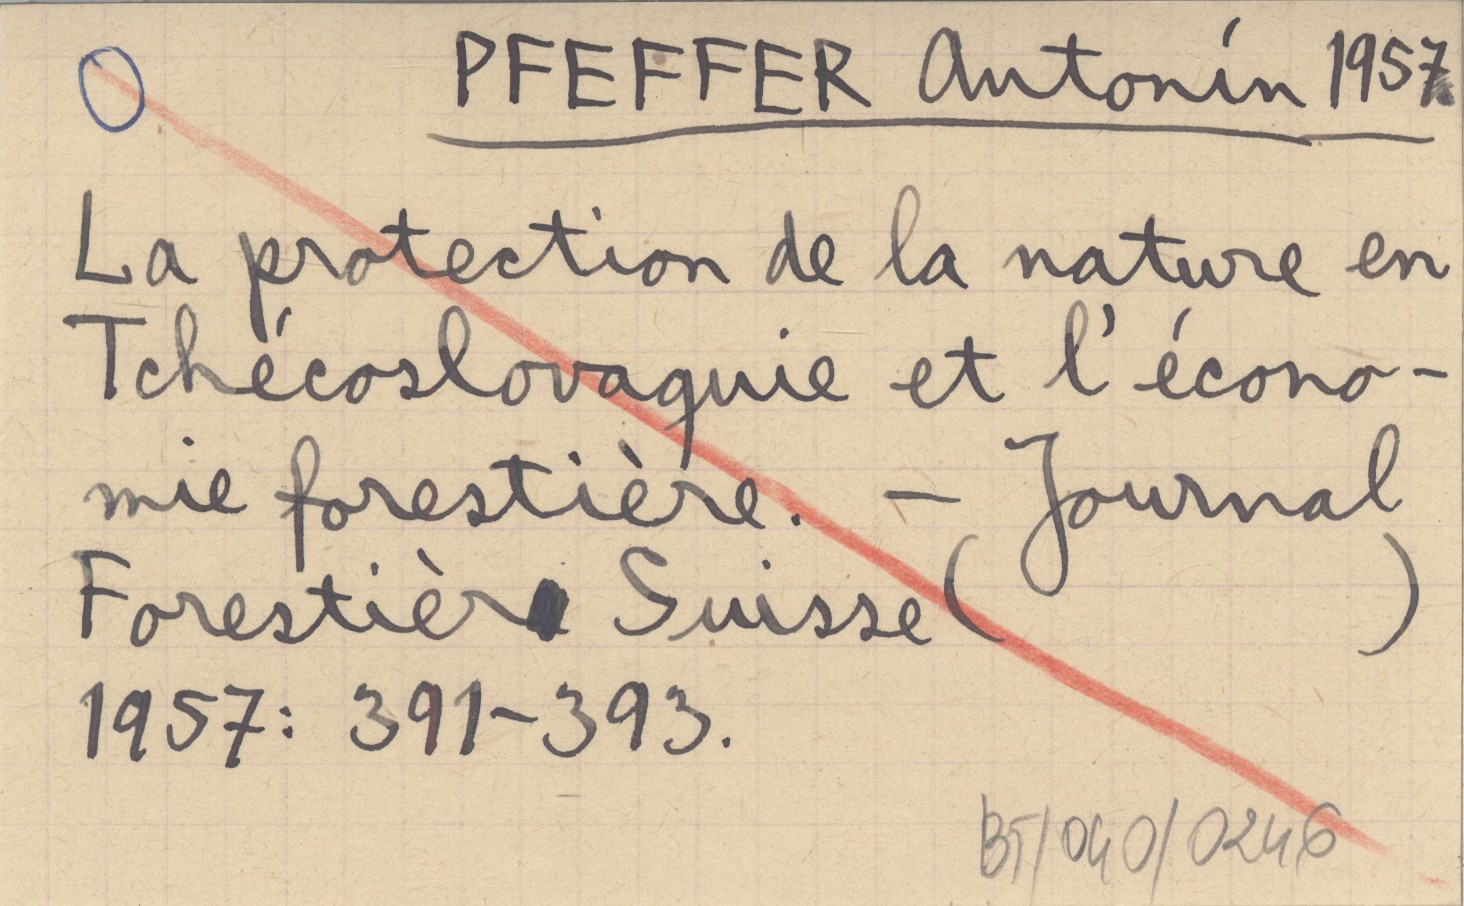 PFEFFER Antonín 1957
La protection de la nature en
Tchécoslovaquie et l'écono-
mie forestière. - Journal
Forestièr Suisse ( )
1957: 391-393.
BT/040/0246